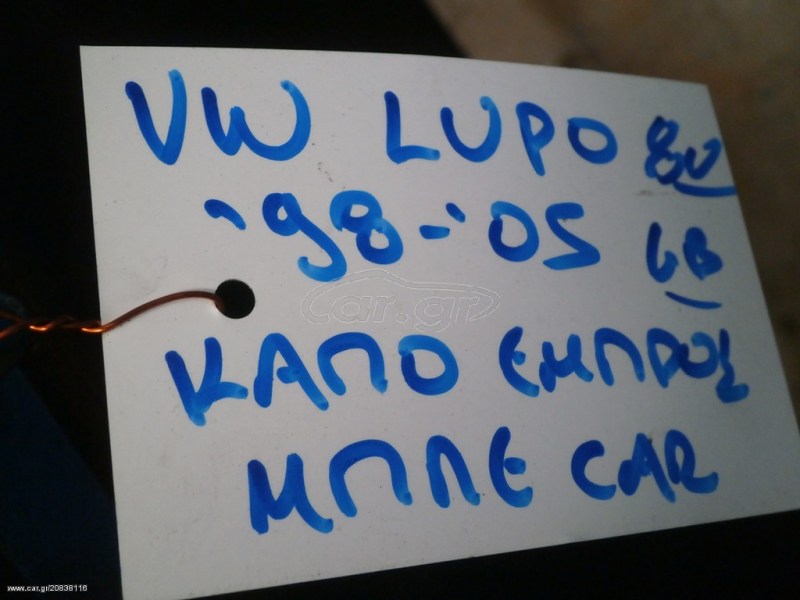 VW LUPO 80
'98-'05 GB
ΚΑΠΟ ΕΜΠΡΟΣ
ΜΠΛΕ CAR
car.gr
www.car.gr/20838116